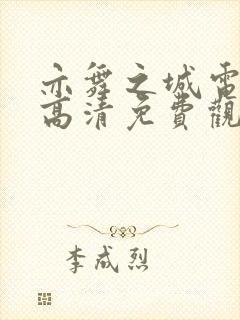 亦舞之城電
高清免費觀
李成烈